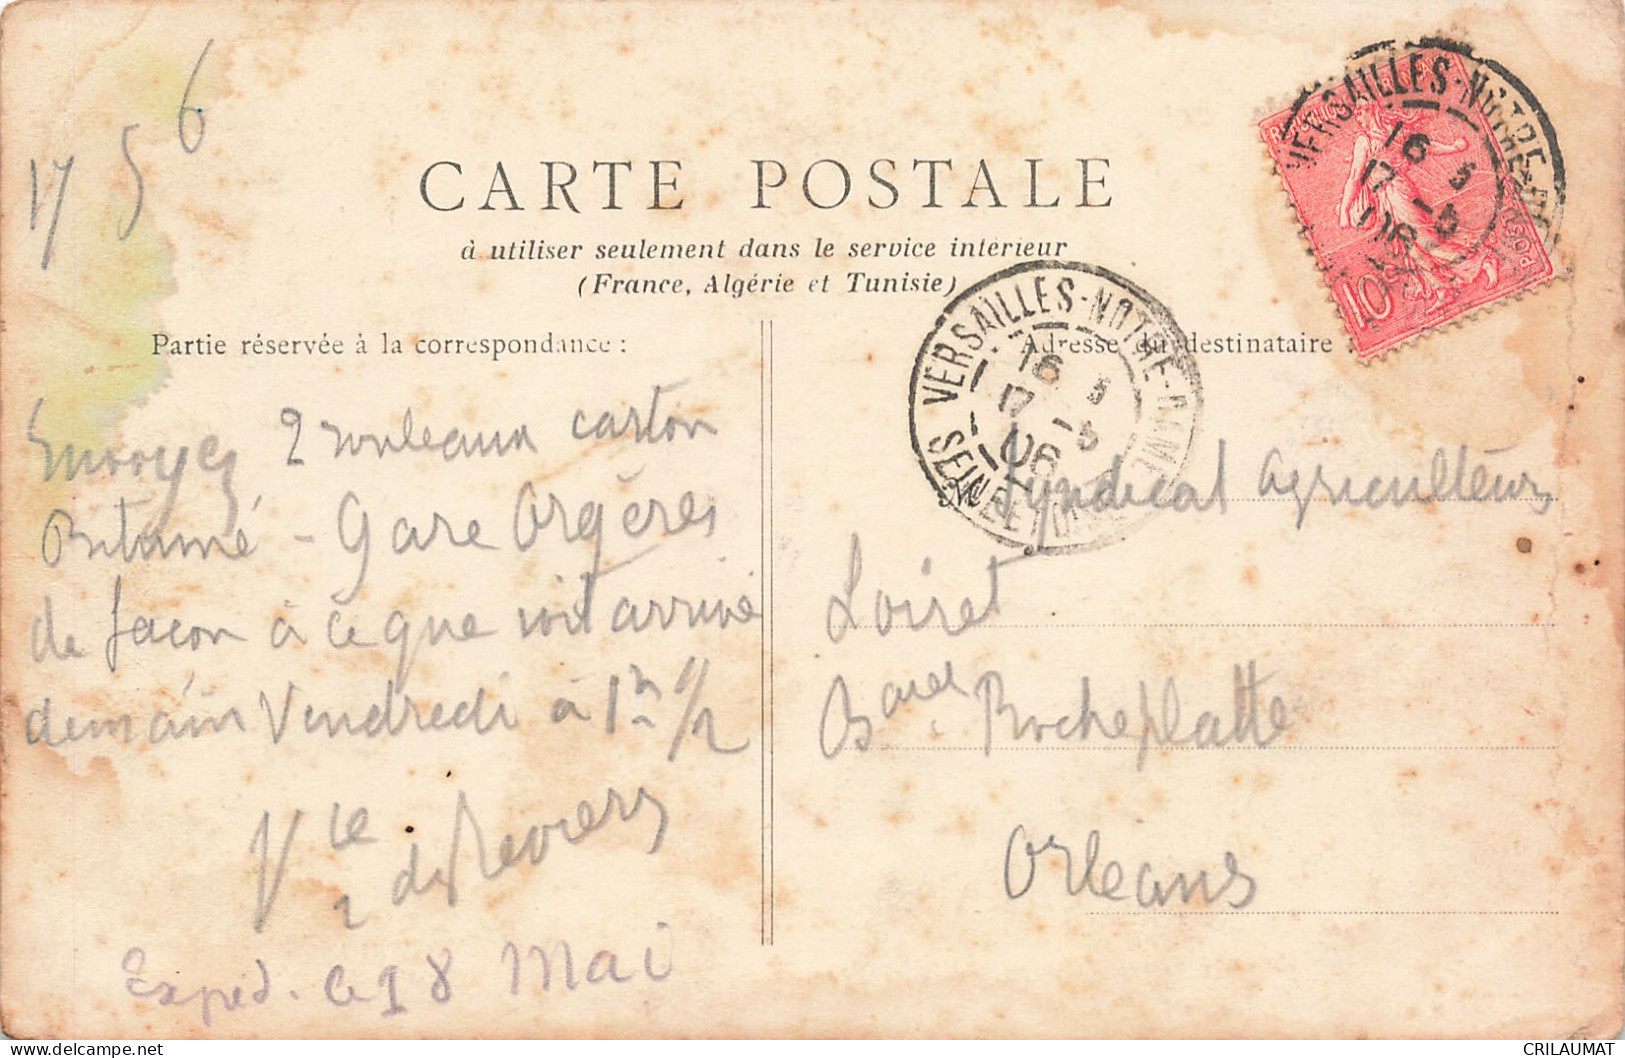 17 5 6
CARTE POSTALE
à utiliser seulement dans le service intérieur
(France, Algérie et Tunisie)
Partie réservée à la correspondance :
Adresse du destinataire :
VERSAILLES-NOTRE-DAME
16
17 -5
06
POSTES
10
VERSAILLES-NOTRE-DAME
16
17 -5
06
SEINE ET OISE
Envoyez 2 rouleaux carton
Bitumé - Gare Orgères
de façon à ce que soit arrivé
demain Vendredi à 1h 1/2
Vte de Reviers
Expéd. le 18 Mai
Syndicat Agriculteurs
Loiret
Bard Rocheplatte
Orléans
CRILAUMAT